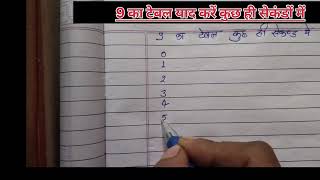 9 का टेबल याद करें कुछ ही सेकंडों में
9 का टेबल कुछ ही सेकण्ड में
0
1
2
3
4
5